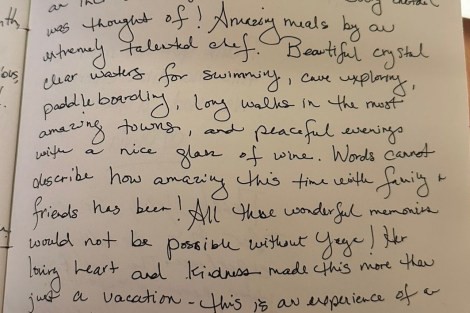 was thought of! Amazing meals by an
extremely talented chef. Beautiful crystal
clear waters for swimming, cave exploring,
paddleboarding, long walks in the most
amazing towns, and peaceful evenings
with a nice glass of wine. Words cannot
describe how amazing this time with family &
friends has been! All these wonderful memories
would not be possible without! Her
loving heart and kindness made this more than
just a vacation - this is an experience of a